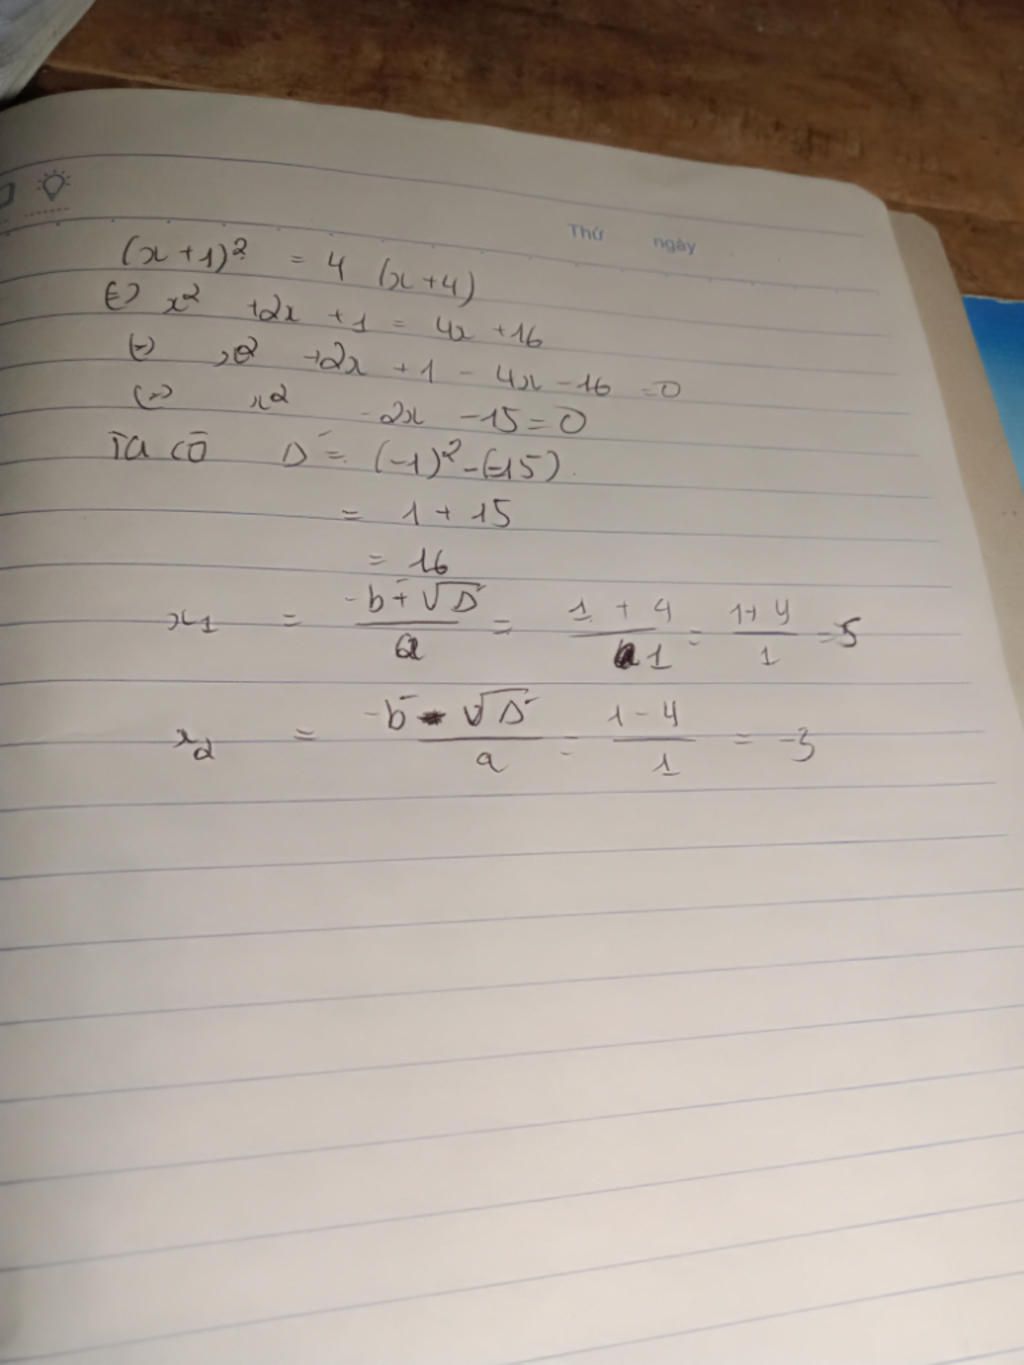 Thứ ngày
(x+1)² = 4 (x+4)
(=) x² +2x +1 = 4x +16
(=) x² +2x +1 - 4x -16 =0
(=) x² -2x -15=0
Ta có Δ' = (-1)² -(-15).
= 1 + 15
= 16
x₁ = (-b' + √Δ')/a = (1 + 4)/1 = (1+ 4)/1 =5
x₂ = (-b' - √Δ')/a = (1 - 4)/1 = -3